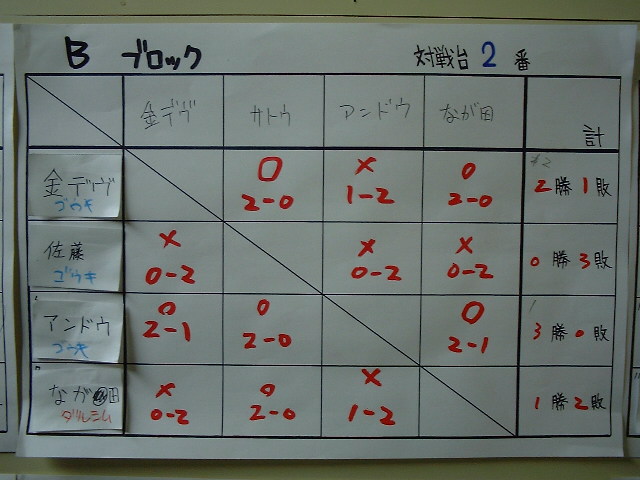 B ブロック 対戦台 2 番
金デヴ サトウ アンドウ なが田 計
金デヴ ○ 2-0 × 1-2 ○ 2-0 2勝1敗
ゴウキ
佐藤 × 0-2 × 0-2 × 0-2 0勝3敗
ゴウキ
アンドウ ○ 2-1 ○ 2-0 ○ 2-1 3勝0敗
ゴウキ
なが田 × 0-2 ○ 2-0 × 1-2 1勝2敗
ダルシム